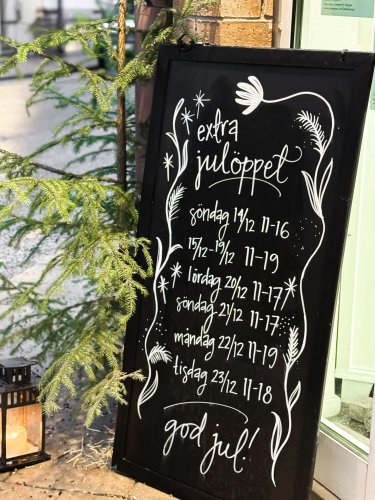 extra
julöppet
söndag 14/12 11-16
15/12-19/12 11-19
lördag 20/12 11-17
söndag 21/12 11-17
måndag 22/12 11-19
tisdag 23/12 11-18
god jul!